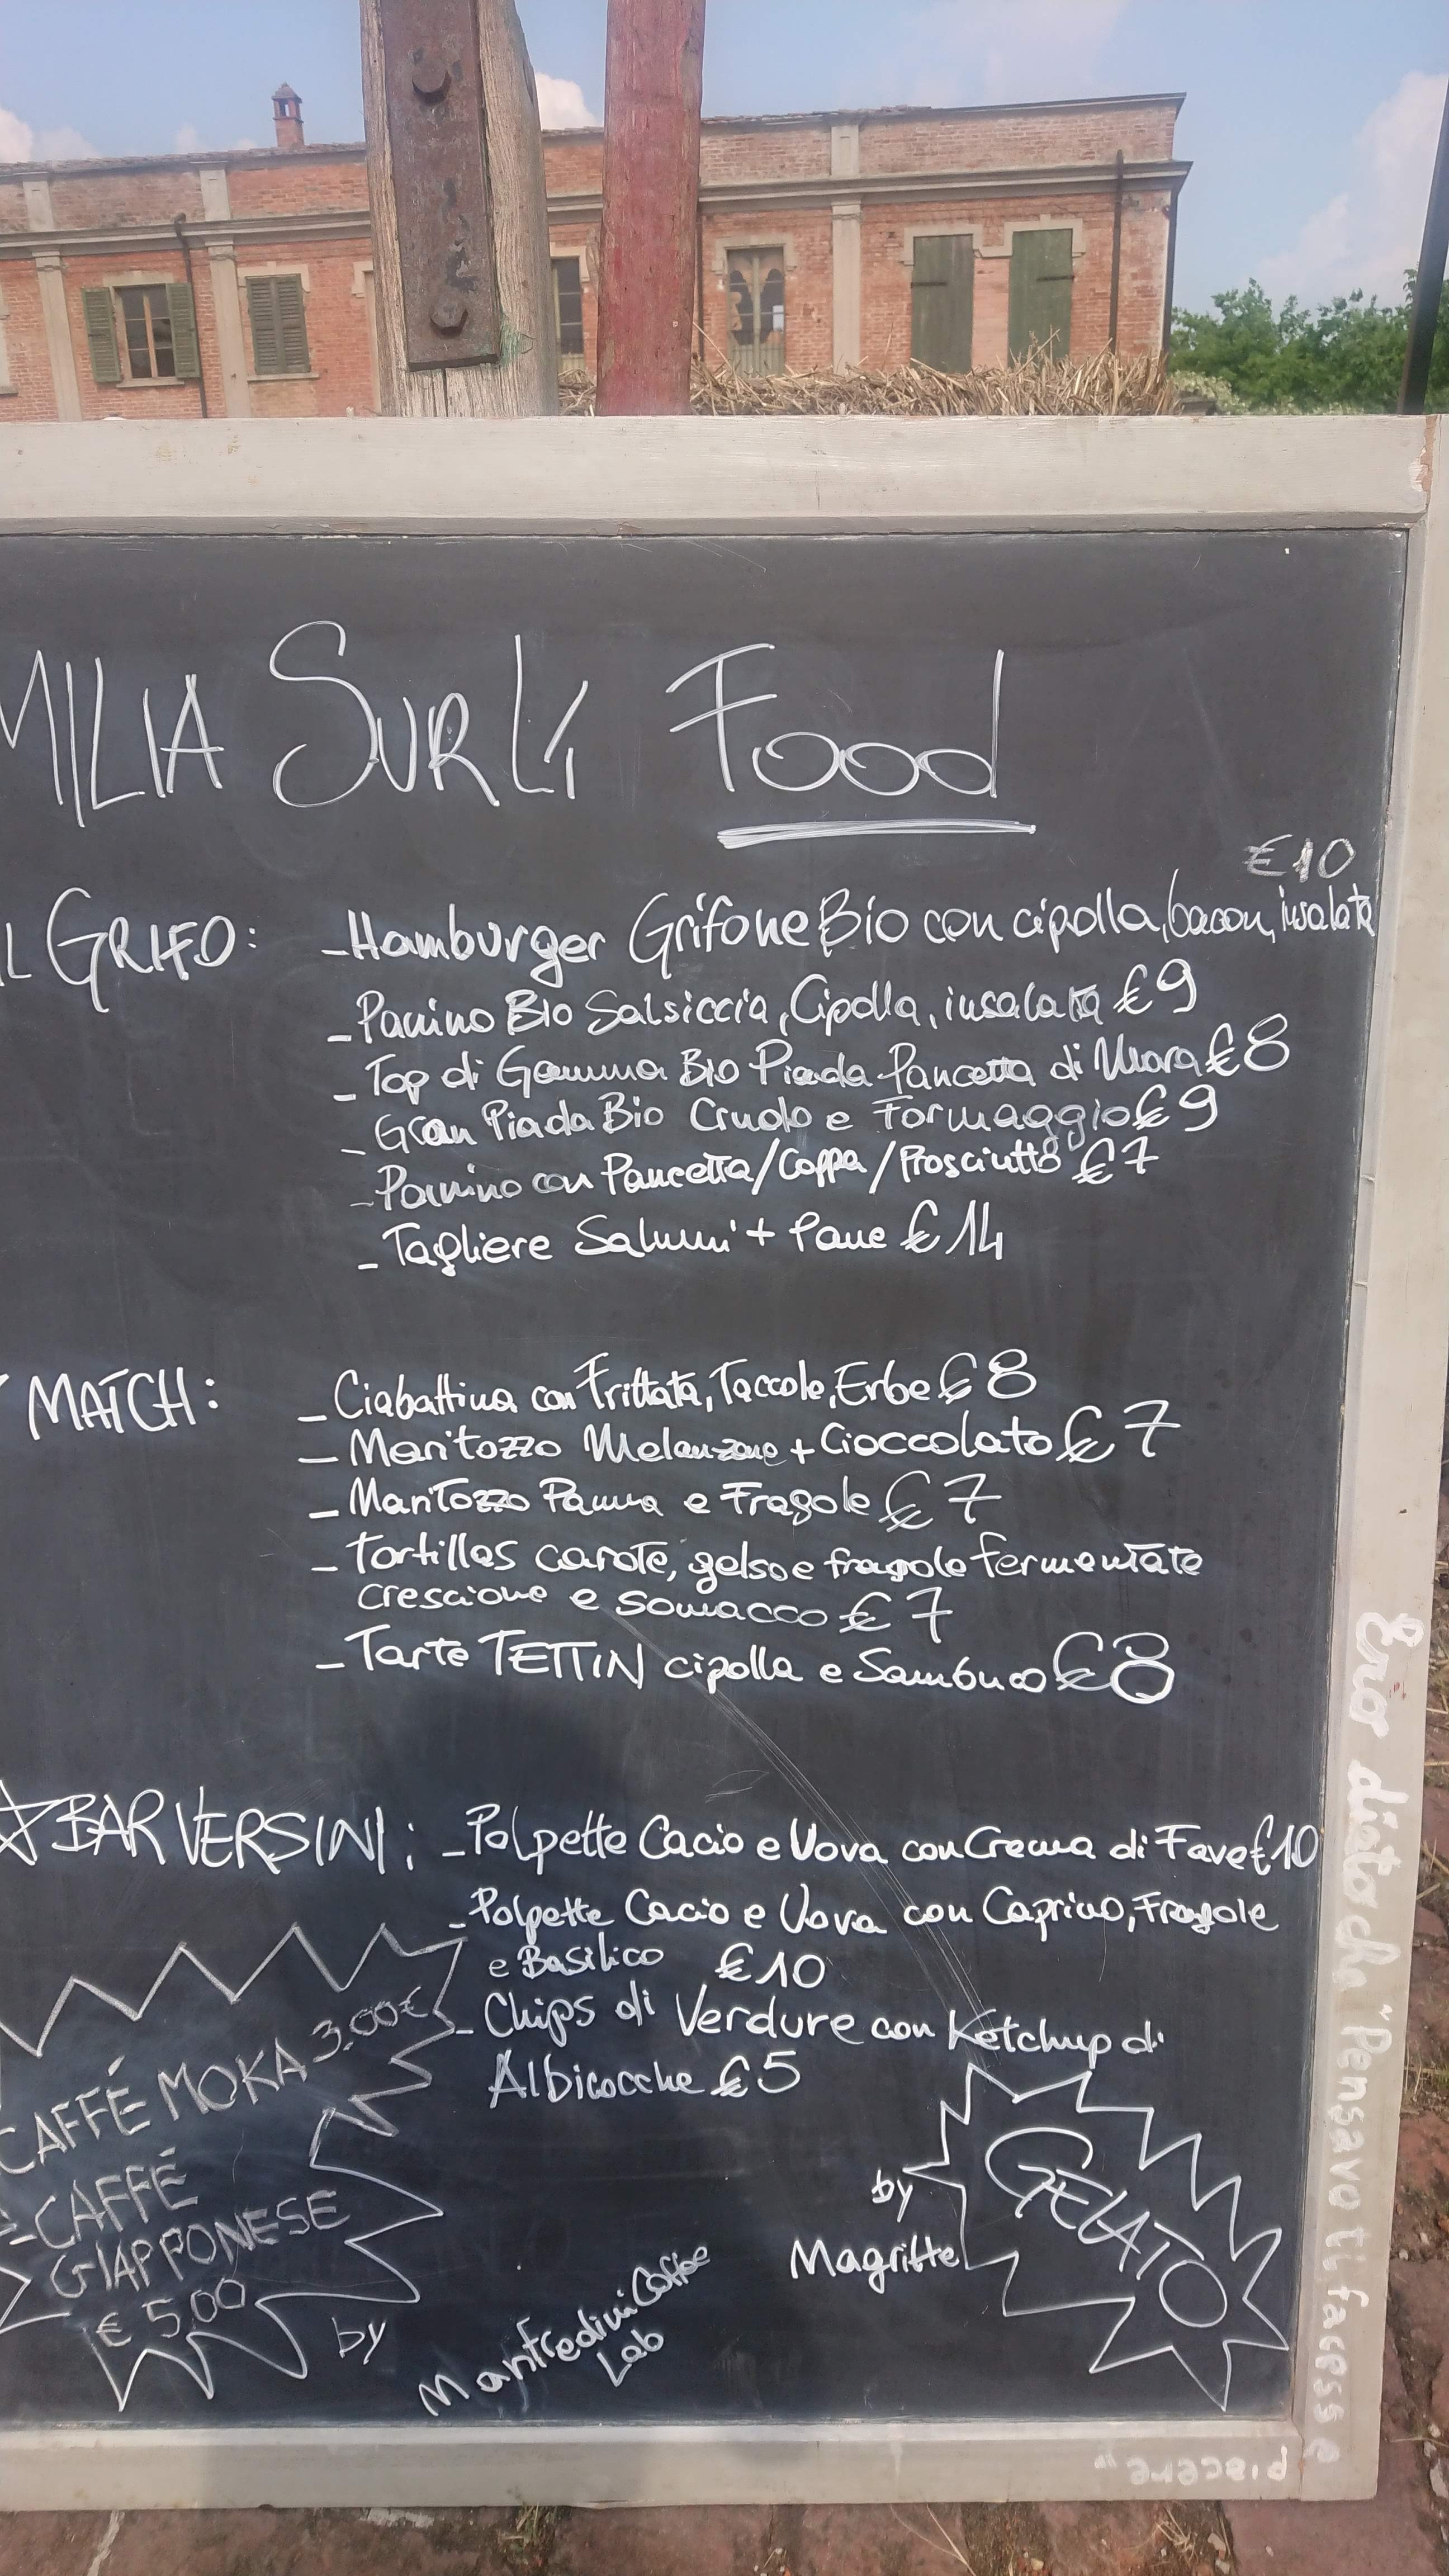 MILIA SURLI Food
€10
IL GRIFO: - Hamburger Grifone Bio con cipolla, bacon, insalata
- Panino Bio Salsiccia, Cipolla, insalata €9
- Top di Gamma Bio Piada Pancetta di Mora €8
- Gran Piada Bio Crudo e Formaggio €9
- Panino con Pancetta/Coppa/Prosciutto €7
- Tagliere Salumi + Pane €14
MATCH: - Ciabattina con Frittata, Taccole, Erbe €8
- Maritozzo Melanzane + Cioccolato €7
- Maritozzo Panna e Fragole €7
- Tortillas carote, gelso e fragole fermentate
crescione e Somacco €7
- Tarte TETTIN cipolla e Sambuco €8
BAR VERSINI: - Polpette Cacio e Uova con Crema di Fave €10
- Polpette Cacio e Uova con Caprino, Fragole
e Basilico €10
- Chips di Verdure con Ketchup di
Albicocche €5
CAFFÉ MOKA 3.00€
- CAFFÉ
GIAPPONESE
€ 5,00
by
Manfredini Coffee
Lab
by
Magritte
GELATO
"Pensavo ti facesse
piacere"